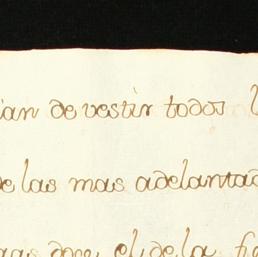 ian de vestir todos
de las mas adelantad
dos, el de la